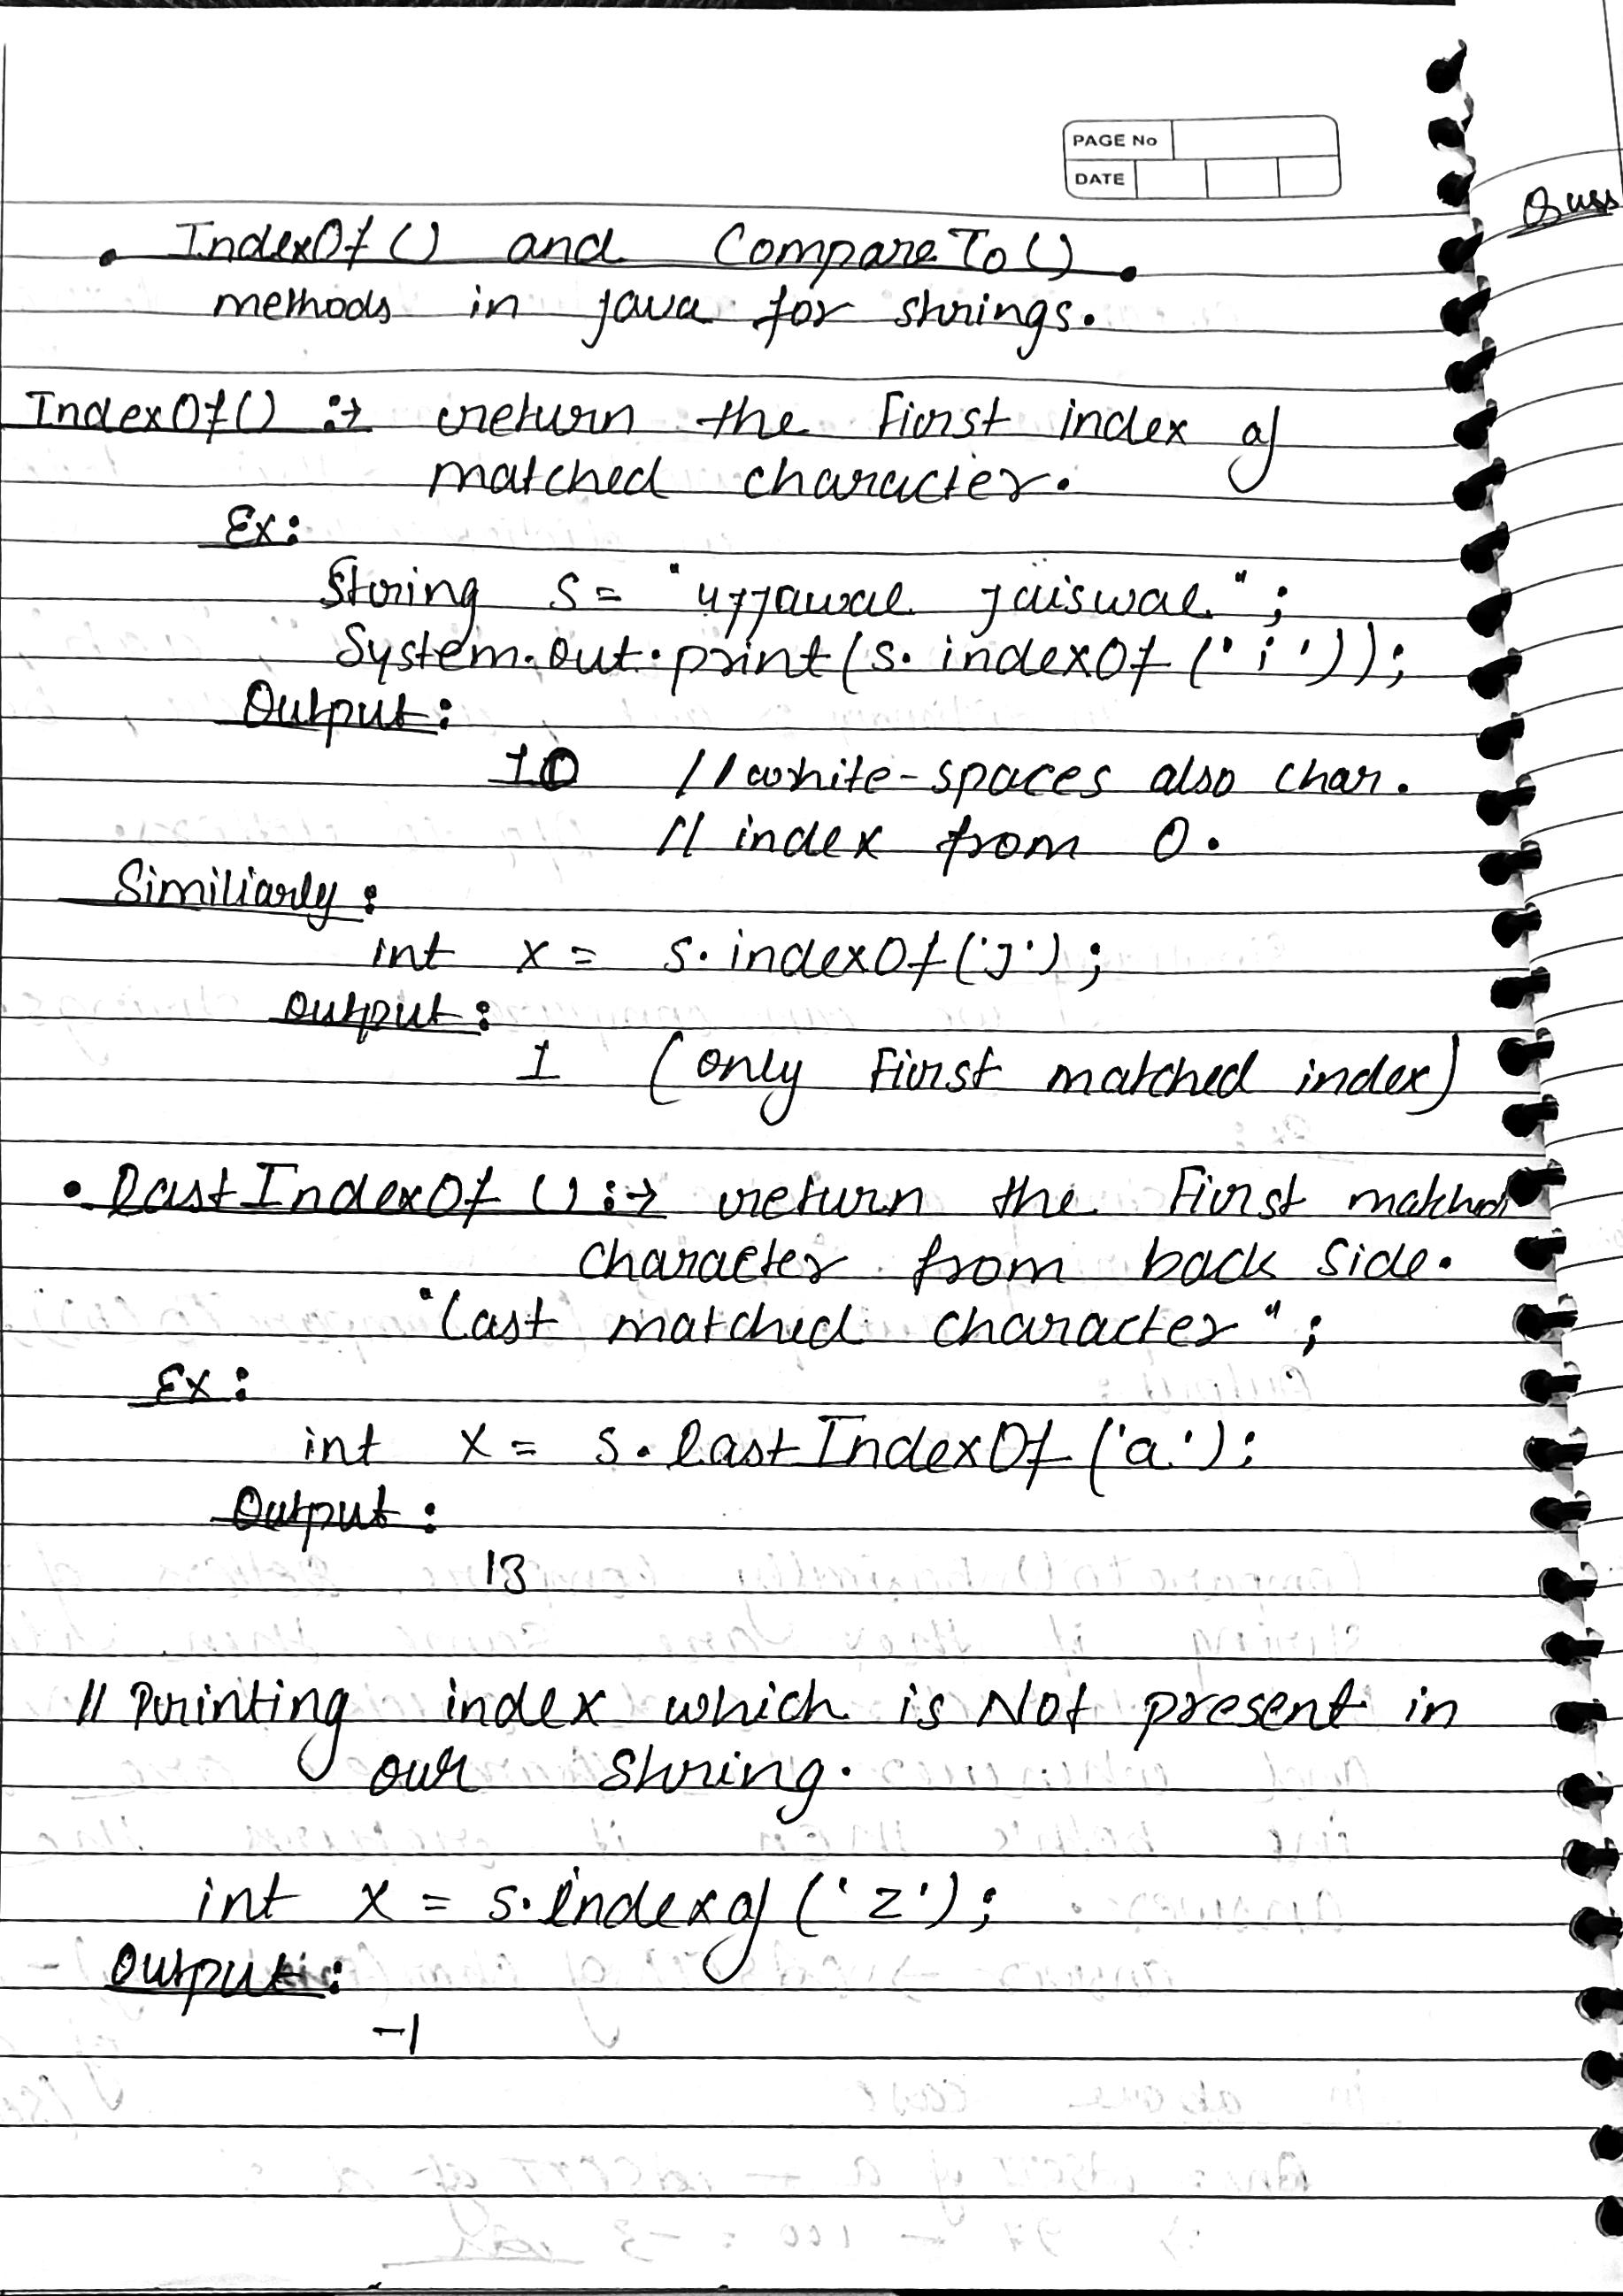 PAGE No
DATE
• IndexOf () and CompareTo () •
methods in java for strings.
IndexOf() :→ return the First index of
matched character.
Ex:
String s = "ujjawal jaiswal";
System.out.print(s.indexOf('i'));
Output:
10 //white-spaces also char.
// index from 0.
Similiarly:
int x = s.indexOf('j');
Output:
1 (only First matched index)
• lastIndexOf () :→ return the First matched
character from back side.
"last matched character";
Ex:
int x = s.lastIndexOf('a');
Output:
13
// Printing index which is Not present in
our string.
int x = s.indexof('z');
Output:
-1